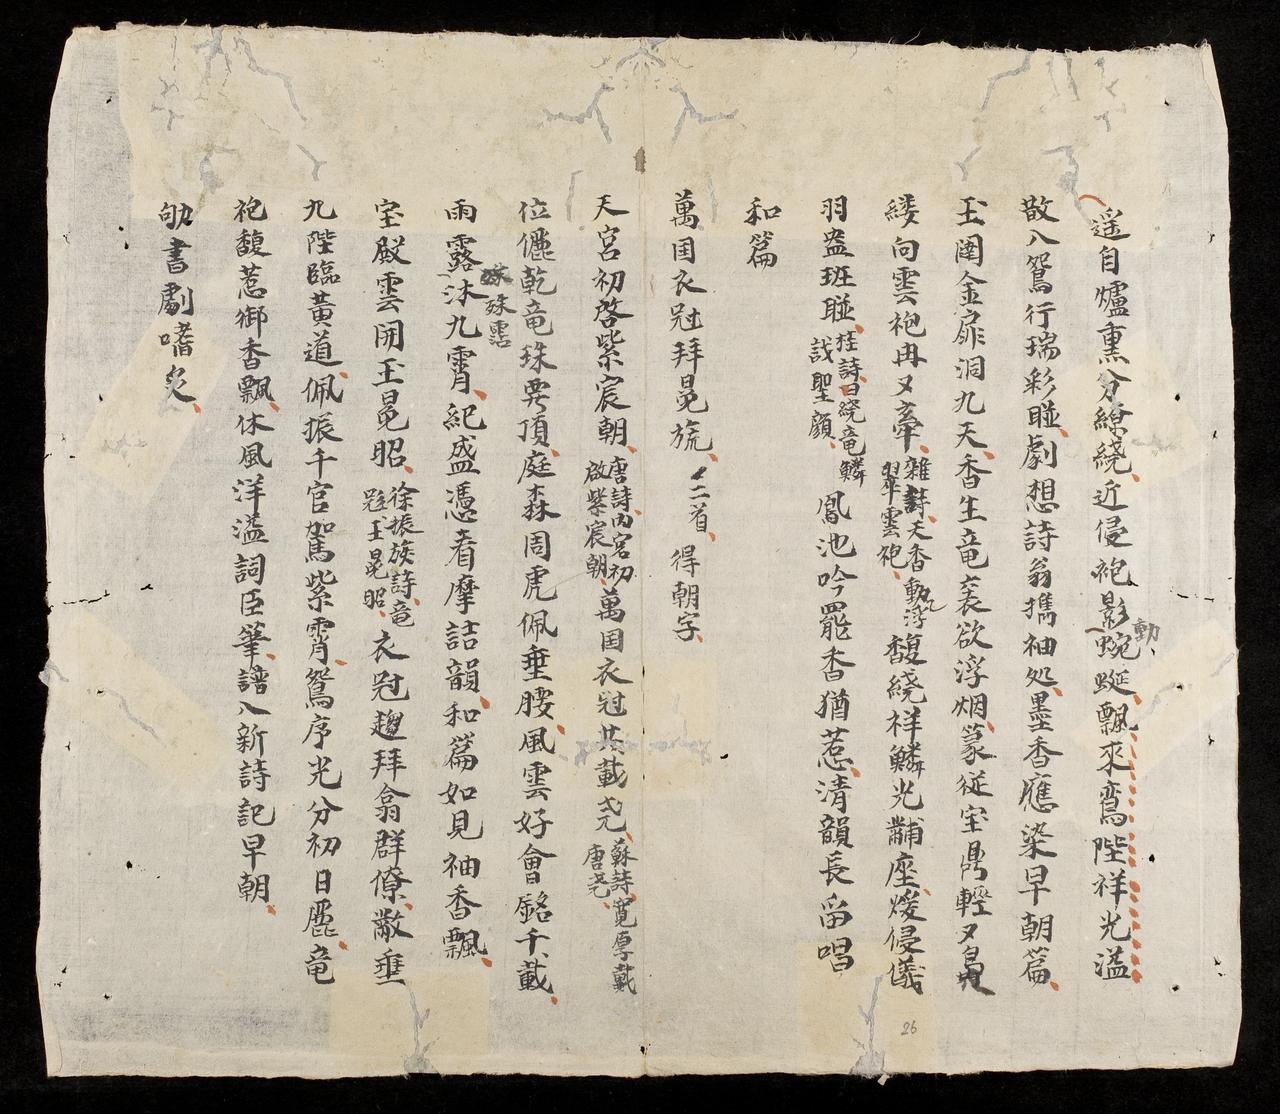 遥自爐熏分繚繞近侵袍影蜿蜒飄來鸞陛祥光溢
動
散入鴛行瑞彩聯劇想詩翁攜袖処墨香應染早朝篇
玉闔金扉洞九天香生竜袞欲浮烟篆從宝鼎輕夕裊
縷向雲袍冉夕牽雜詩天香動浮翠雲袍馥繞祥鱗光黼座煖侵儀
羽盎班聯桂詩曰繞竜鱗戠聖顔鳳池吟罷香猶惹清韻長留唱
和篇
萬国衣冠拜冕旒二首得朝字
天宮初啓紫宸朝唐詩内宮初啟紫宸朝萬国衣冠共載尭蘇詩寛厚載唐尭
位儷乾竜珠耎頂庭森周虎佩垂腰風雲好會銘千載
雨露沐九霄紀盛憑看摩詰韻和篇如見袖香飄
殊殊霑
宝殿雲開玉冕昭徐振族詩竜冠玉冕昭衣冠趨拜翕群僚敞垂
九陛臨黄道佩振千官駕紫霄鴛序光分初日麗竜
袍馥惹御香飄休風洋溢詞臣筆譜入新詩記早朝
劬書劇嗜炙
26